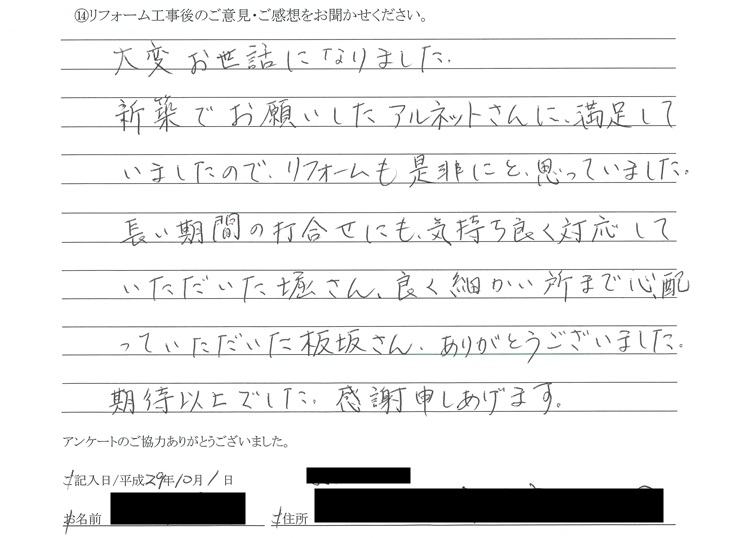 ⑭リフォーム工事後のご意見・ご感想をお聞かせください。
大変お世話になりました.
新築でお願いしたアルネットさんに、満足して
いましたので、リフォームも是非にと、思っていました。
長い期間の打合せにも、気持ち良く対応して
いただいた堀さん、良く細かい所まで心配
っていただいた板坂さん、ありがとうございました。
期待以上でした. 感謝申しあげます。
アンケートのご協力ありがとうございました。
ご記入日/平成29年10月1日
お名前
ご住所